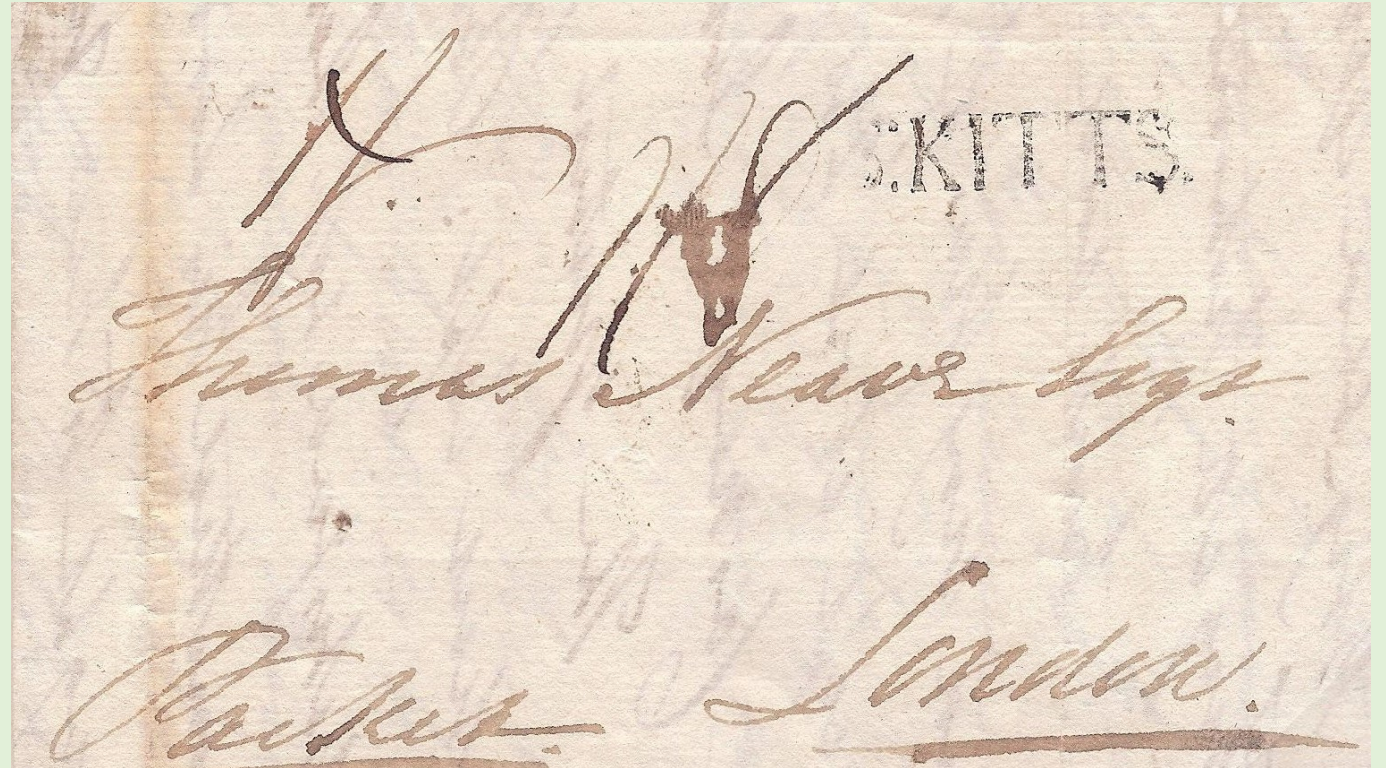 S.KITTS.
Thomas Neave Esqr.
Packet.
London.